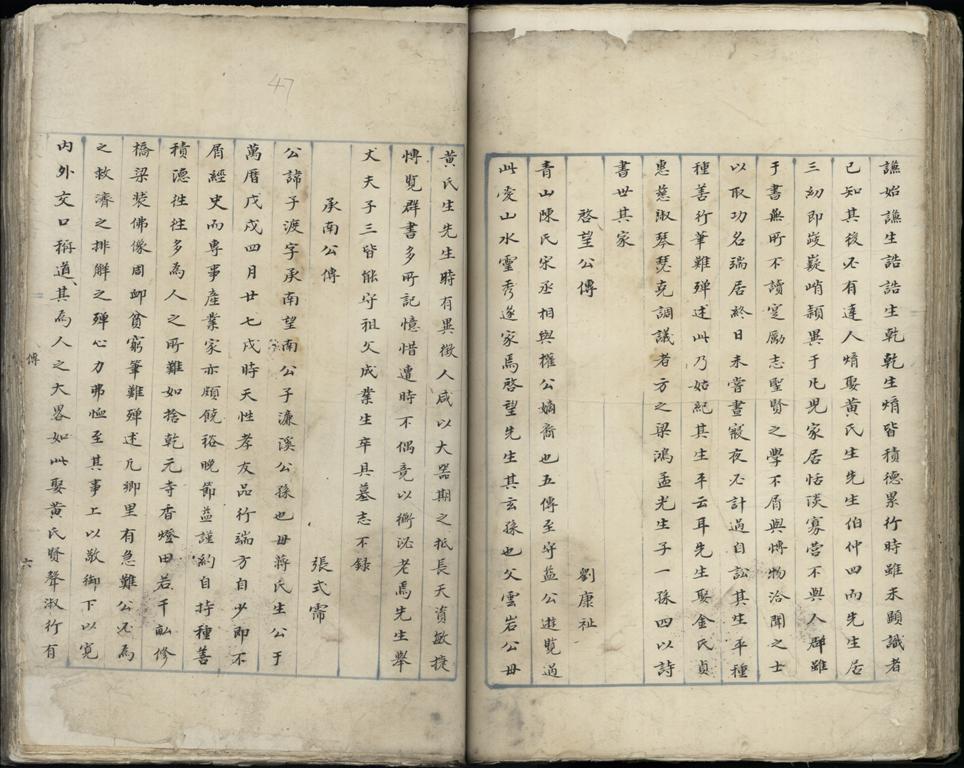 譙始譙生誥誥生乾乾生焴皆積德累行時雖未顯識者
已知其後必有達人焴娶黃氏生先生伯仲四而先生居
三幼即嶷嶷峭頴異于凢児家居恬淡寡营不與人群雖
于書無所不讀寔勵志聖賢之學不屑與博物洽聞之士
以取功名端居終日未嘗晝寢夜必計過自訟其生平種
種善行筆難殫述此乃始紀其生平云耳先生娶金氏貞
惠慈淑琴瑟克調議者方之梁鴻孟光生子一孫四以詩
書世其家
啓望公傳 劉康祉
青山陳氏宋丞相與權公嫡裔也五傳至守益公遊覽過
此愛山水靈秀遂家焉啓望先生其玄孫也父雲岩公母
黃氏生先生時有異徵人咸以大器期之抵長天資敏捷
博覽群書多所記憶惜遭時不偶竟以衡泌老焉先生舉
丈夫子三皆能守祖父成業生卒具墓志不録
承南公傳 張式霈
公諱子渡字承南望南公子濂溪公孫也母蔣氏生公于
萬曆戊戌四月廿七戌時天性孝友品行端方自少即不
屑經史而專事產業家亦頗饒裕晚節益謹約自持種善
積德徃徃多為人之所難如捨乾元寺香燈田若干畆修
橋梁裝佛像周卹貧窮筆難殫述凢鄉里有急難公必為
之救濟之排解之殫心力弗恤至其事上以敬御下以寬
内外交口稱道其為人之大畧如此娶黃氏賢聲淑行有
傳
六
47